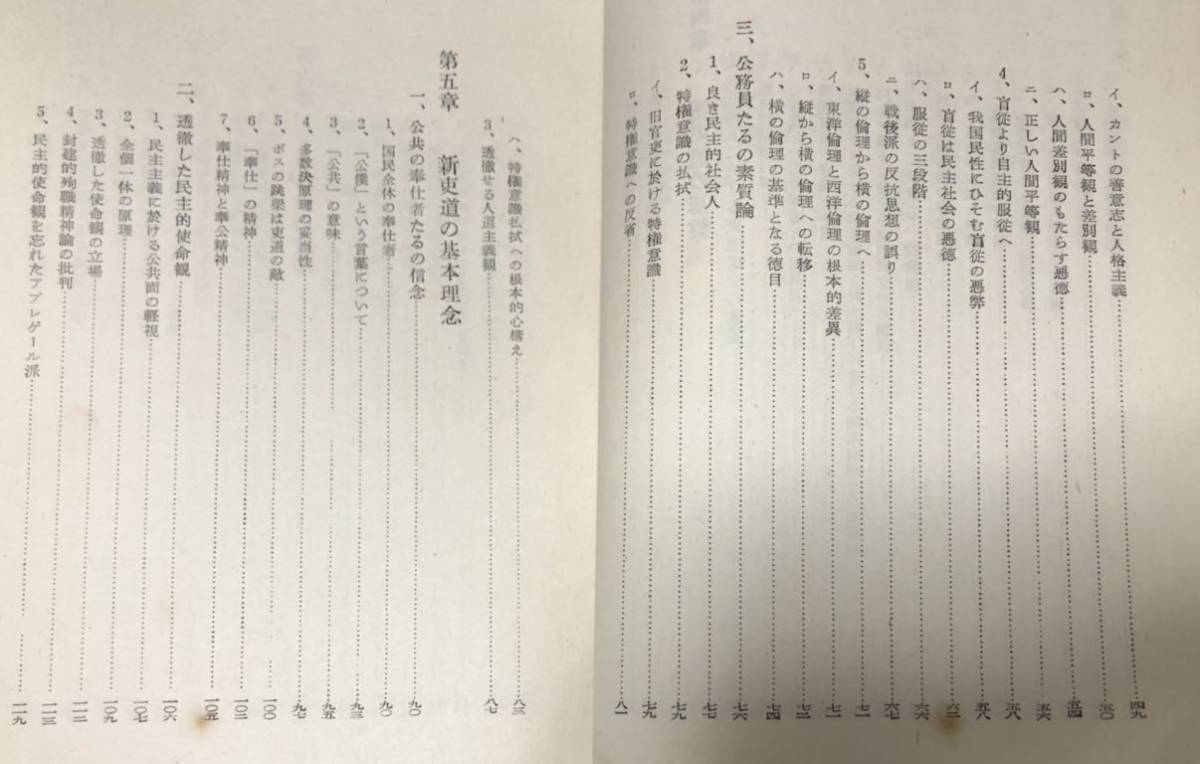 イ、カントの善意志と人格主義……四九
ロ、人間平等観と差別観……五〇
ハ、人間差別観のもたらす悪徳……五四
ニ、正しい人間平等観……五六
4、盲従より自主的服従へ……五八
イ、我国民性にひそむ盲従の悪弊……五八
ロ、盲従は民主社会の悪徳……六二
ハ、服従の三段階……六六
ニ、戦後派の反抗思想の誤り……六七
5、縦の倫理から横の倫理へ……七一
イ、東洋倫理と西洋倫理の根本的差異……七一
ロ、縦から横の倫理への転移……七二
ハ、横の倫理の基準となる徳目……七四
三、公務員たるの素質論……七六
1、良き民主的社会人……七七
2、特権意識の払拭……七九
イ、旧官吏に於ける特権意識……七九
ロ、特権意識への反省……八一
ハ、特権意識払拭への根本的心構え……八三
3、透徹せる人道主義観……八七
第五章 新吏道の基本理念
一、公共の奉仕者たるの信念……九〇
1、国民全体の奉仕者……九〇
2、「公僕」という言葉について……九三
3、「公共」の意味……九五
4、多数決原理の妥当性……九七
5、ボスの跳梁は吏道の敵……一〇〇
6、「奉仕」の精神……一〇二
7、奉仕精神と奉公精神……一〇五
二、透徹した民主的使命観……一〇六
1、民主主義に於ける公共面の軽視……一〇七
2、全個一体の原理……一〇九
3、透徹した使命観の立場……一一二
4、封建的殉職精神論の批判……一一三
5、民主的使命観を忘れたアプレゲール派……一一九